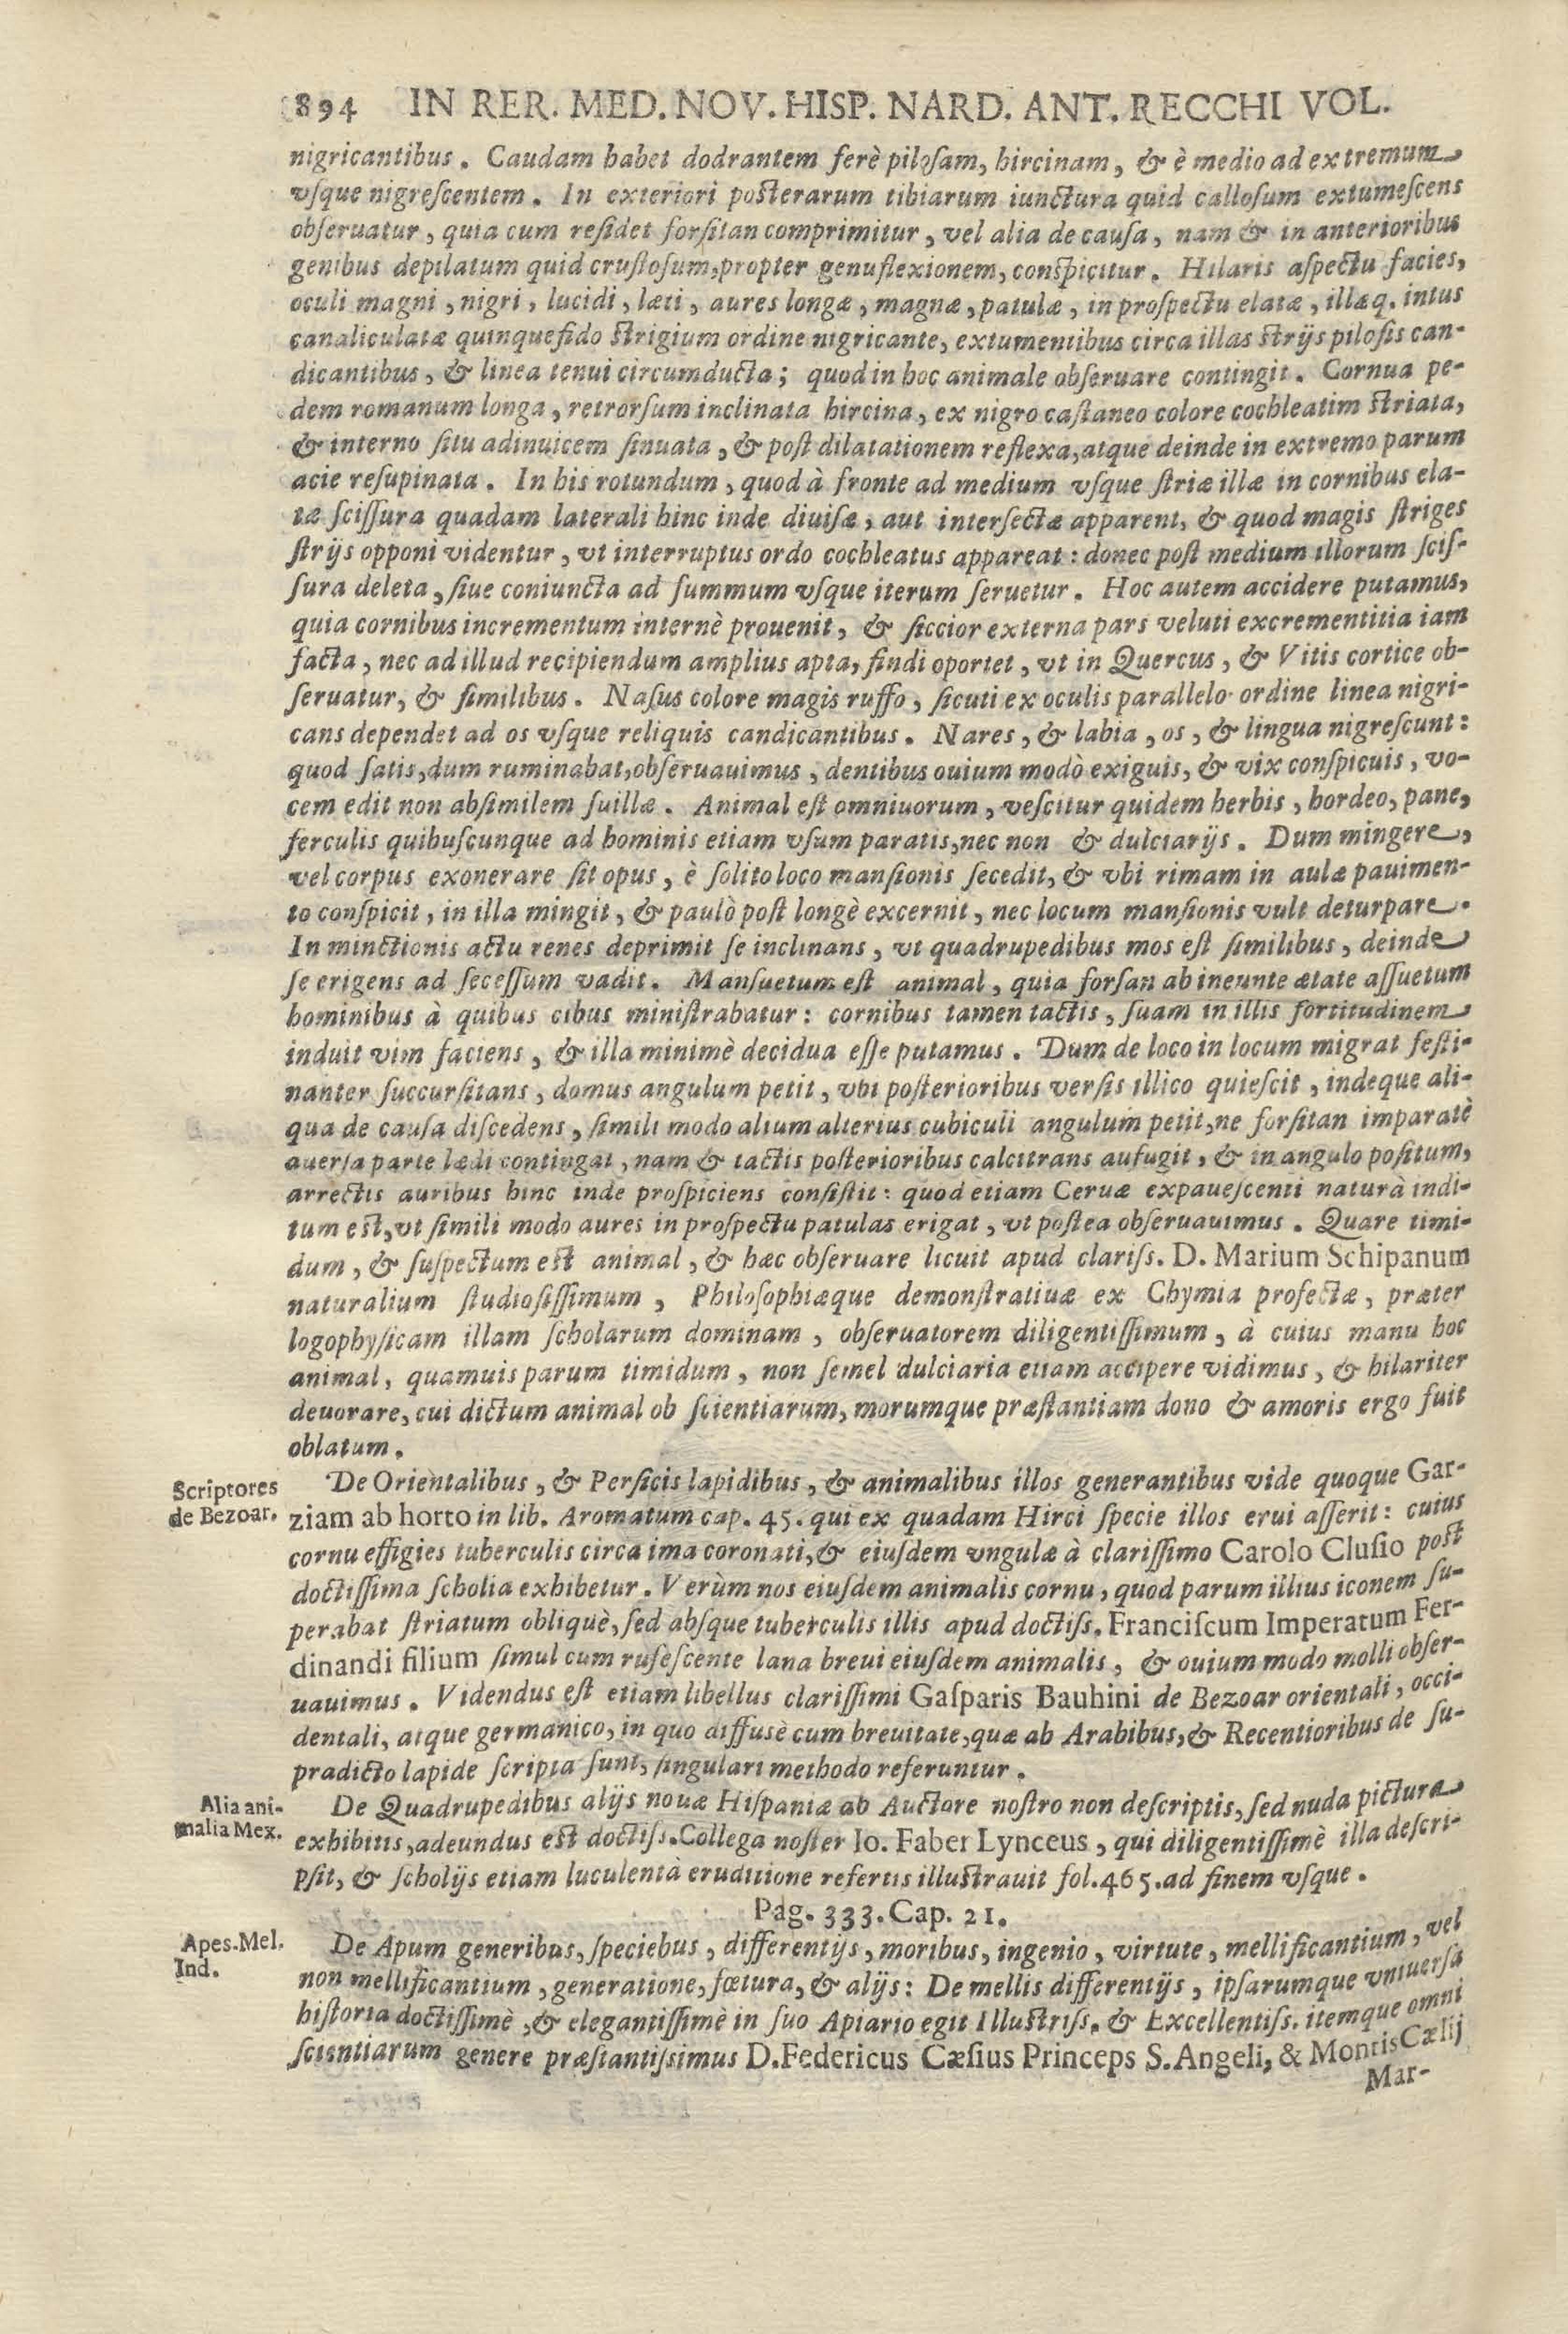 894 IN RER. MED. NOV. HISP. NARD. ANT. RECCHI VOL.
nigricantibus. Caudam habet dodrantem ferè pilosam, hircinam, & è medio ad extremum
vſque nigreſcentem. In exteriori posterarum tibiarum iunctura quid calloſum extumeſcens
obſeruatur, quia cum reſidet forſitan comprimitur, vel alia de cauſa, nam & in anterioribus
genibus depilatum quid cruſtoſum, propter genuflexionem, conſpicitur. Hilaris aſpectu facies,
oculi magni, nigri, lucidi, læti, aures longæ, magnæ, patulæ, in proſpectu elatæ, illæq. intus
canaliculatæ quinquefido strigium ordine nigricante, extumentibus circa illas strijs piloſis can-
dicantibus, & linea tenui circumducta; quod in hoc animale obſeruare contingit. Cornua pe-
dem romanum longa, retrorſum inclinata hircina, ex nigro caſtaneo colore cochleatim striata,
& interno ſitu adinuicem ſinuata, & poſt dilatationem reflexa, atque deinde in extremo parum
acie reſupinata. In his rotundum, quod à fronte ad medium vſque ſtriæ illæ in cornibus ela-
tæ ſciſſura quadam laterali hinc inde diuiſæ, aut interſectæ apparent, & quod magis ſtriges
ſtrijs opponi videntur, vt interruptus ordo cochleatus appareat: donec poſt medium illorum ſciſ-
ſura deleta, ſiue coniuncta ad ſummum vſque iterum ſeruetur. Hoc autem accidere putamus,
quia cornibus incrementum internè prouenit, & ſiccior externa pars veluti excrementitia iam
facta, nec ad illud recipiendum amplius apta, findi oportet, vt in Quercus, & Vitis cortice ob-
ſeruatur, & ſimilibus. Naſus colore magis ruffo, ſicuti ex oculis parallelo ordine linea nigri-
cans dependet ad os vſque reliquis candicantibus. Nares, & labia, os, & lingua nigreſcunt:
quod ſatis, dum ruminabat, obſeruauimus, dentibus ouium modò exiguis, & vix conſpicuis, vo-
cem edit non abſimilem ſuillæ. Animal eſt omniuorum, veſcitur quidem herbis, hordeo, pane,
ferculis quibuſcunque ad hominis etiam vſum paratis, nec non & dulciarijs. Dum mingere,
vel corpus exonerare ſit opus, è ſolito loco manſionis ſecedit, & vbi rimam in aulæ pauimen-
to conſpicit, in illa mingit, & paulò poſt longè excernit, nec locum manſionis vult deturpare.
In minctionis actu renes deprimit ſe inclinans, vt quadrupedibus mos eſt ſimilibus, deinde
ſe erigens ad ſeceſſum vadit. Manſuetum est animal, quia forſan ab ineunte ætate aſſuetum
hominibus à quibus cibus miniſtrabatur: cornibus tamen tactis, ſuam in illis fortitudinem
induit vim faciens, & illa minimè decidua eſſe putamus. Dum de loco in locum migrat feſti-
nanter ſuccurſitans, domus angulum petit, vbi poſterioribus verſis illico quieſcit, indeque ali-
qua de cauſa diſcedens, ſimili modo alium alterius cubiculi angulum petit, ne forſitan imparatè
auerſa parte lædi contingat, nam & tactis poſterioribus calcitrans aufugit, & in angulo poſitum,
arrectis auribus hinc inde proſpiciens conſiſtit: quod etiam Ceruæ expaueſcenti naturà indi-
tum est, vt ſimili modo aures in proſpectu patulas erigat, vt poſtea obſeruauimus. Quare timi-
dum, & ſuſpectum est animal, & hæc obſeruare licuit apud clariſs. D. Marium Schipanum
naturalium ſtudioſiſſimum, Philoſophiæque demonſtratiuæ ex Chymia profectæ, præter
logophyſicam illam ſcholarum dominam, obſeruatorem diligentiſſimum, à cuius manu hoc
animal, quamuis parum timidum, non ſemel dulciaria etiam accipere vidimus, & hilariter
deuorare, cui dictum animal ob ſcientiarum, morumque præſtantiam dono & amoris ergo fuit
oblatum.
Scriptores de Bezoar.
De Orientalibus, & Perſicis lapidibus, & animalibus illos generantibus vide quoque Gar-
ziam ab horto in lib. Aromatum cap. 45. qui ex quadam Hirci ſpecie illos erui aſſerit: cuius
cornu effigies tuberculis circa ima coronati, & eiuſdem vngulæ à clariſſimo Carolo Cluſio post
doctiſſima ſcholia exhibetur. Verùm nos eiuſdem animalis cornu, quod parum illius iconem ſu-
perabat ſtriatum obliquè, ſed abſque tuberculis illis apud doctiſs. Franciſcum Imperatum Fer-
dinandi filium ſimul cum rufeſcente lana breui eiuſdem animalis, & ouium modo molli obſer-
uauimus. Videndus eſt etiam libellus clariſſimi Gaſparis Bauhini de Bezoar orientali, occi-
dentali, atque germanico, in quo diffusè cum breuitate, quæ ab Arabibus, & Recentioribus de ſu-
pradicto lapide ſcripta ſunt, ſingulari methodo referuntur.
Alia ani-
malia Mex.
De Quadrupedibus alijs nouæ Hiſpaniæ ab Auctore noſtro non deſcriptis, ſed nuda pictura
exhibitis, adeundus est doctiſs. Collega noſter Io. Faber Lynceus, qui diligentiſſimè illa deſcri-
pſit, & ſcholijs etiam luculentà eruditione refertis illustrauit fol. 465. ad finem vſque.
Pag. 333. Cap. 21.
Apes. Mel.
Ind.
De Apum generibus, ſpeciebus, differentijs, moribus, ingenio, virtute, mellificantium, vel
non mellificantium, generatione, fœtura, & alijs: De mellis differentijs, ipſarumque vniuerſà
hiſtoria doctiſſimè, & elegantiſſimè in ſuo Apiario egit Illustriſs. & Excellentiſs. itemque omni
ſcientiarum genere præſtantiſsimus D. Federicus Cæſius Princeps S. Angeli, & Montis Cælij
Mar-